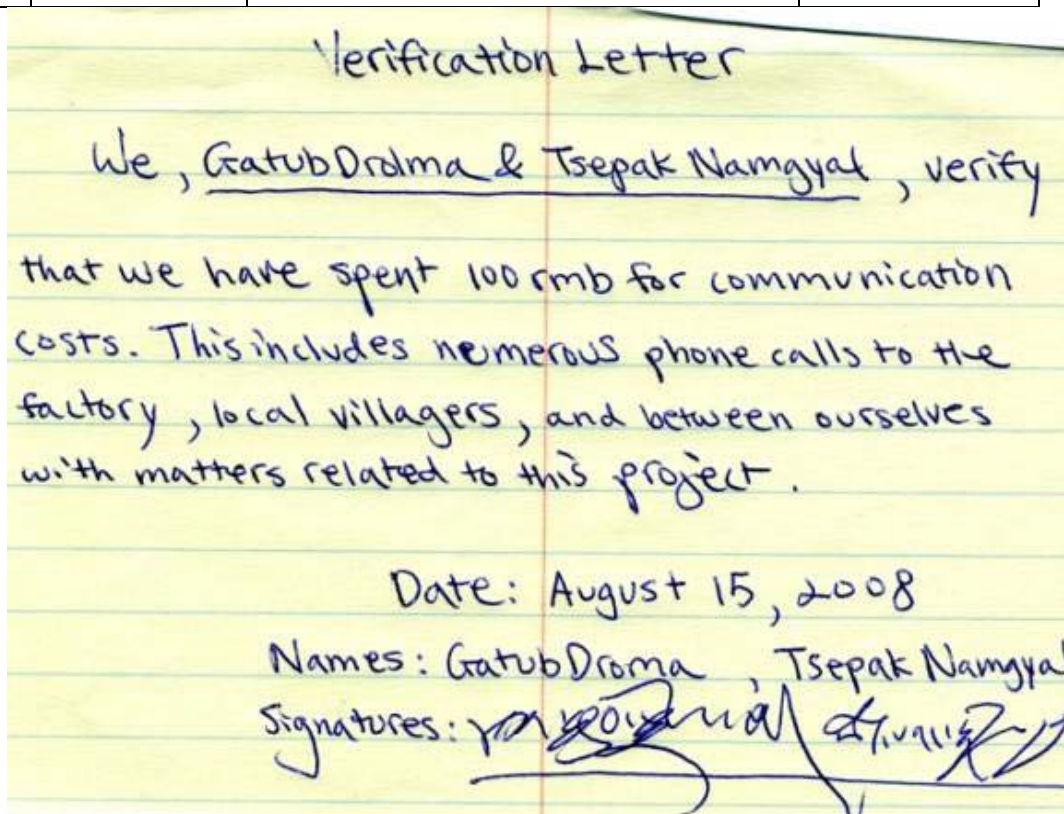 Verification Letter
We, Gatub Drolma & Tsepak Namgyal, verify
that we have spent 100 rmb for communication
costs. This includes numerous phone calls to the
factory, local villagers, and between ourselves
with matters related to this project.
Date: August 15, 2008
Names: Gatub Droma, Tsepak Namgyal
Signatures: